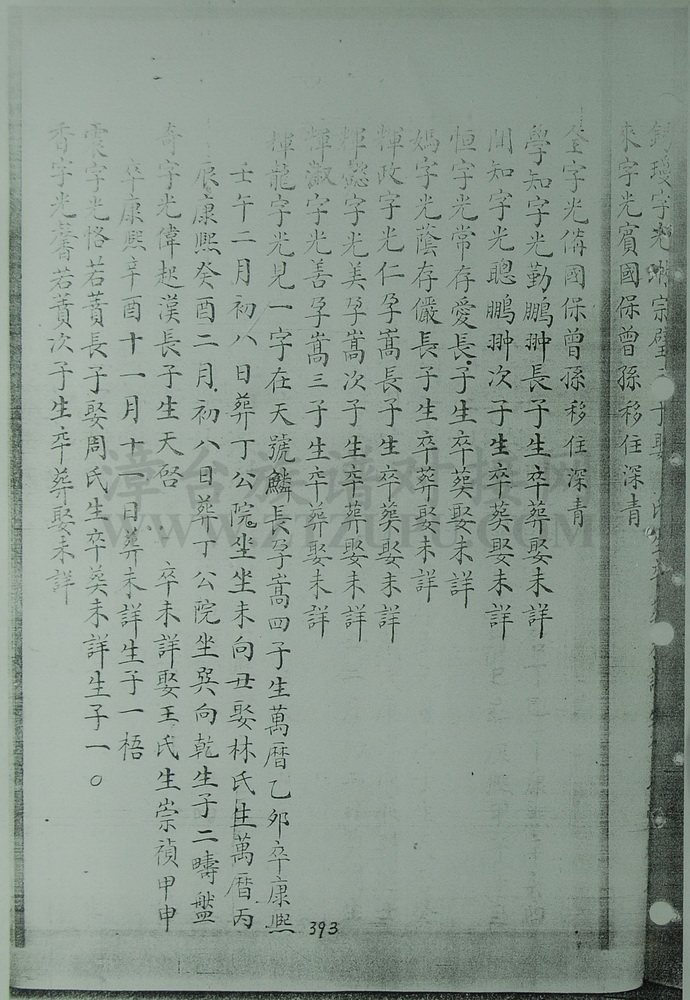 字光 宗璧
來字光賓國保曾孫移住深青
全字光備國保曾孫移住深青
學知字光勤鵬翀長子生卒葬娶未詳
聞知字光聰鵬翀次子生卒葬娶未詳
恒字光常存愛長子生卒葬娶未詳
媽字光蔭存儼長子生卒葬娶未詳
輝政字光仁孕嵩長子生卒葬娶未詳
輝懿字光美孕嵩次子生卒葬娶未詳
輝淑字光善孕嵩三子生卒葬娶未詳
輝龍字光見一字在天號麟長孕嵩四子生萬曆乙夘卒康熙
壬午二月初八日葬丁公院坐坐未向丑娶林氏生萬曆丙
辰康熙癸酉二月初八日葬丁公院坐巽向乾生子二疇盤
奇字光偉起漢長子生天啓 卒未詳娶王氏生崇禎甲申
卒康熙辛酉十一月十一日葬未詳生子一梧
震字光恪若蕡長子娶周氏生卒葬未詳生子一○
香字光馨若蕡次子生卒葬娶未詳
393
漳台族谱对接网
WWW.ZTZUPU.COM